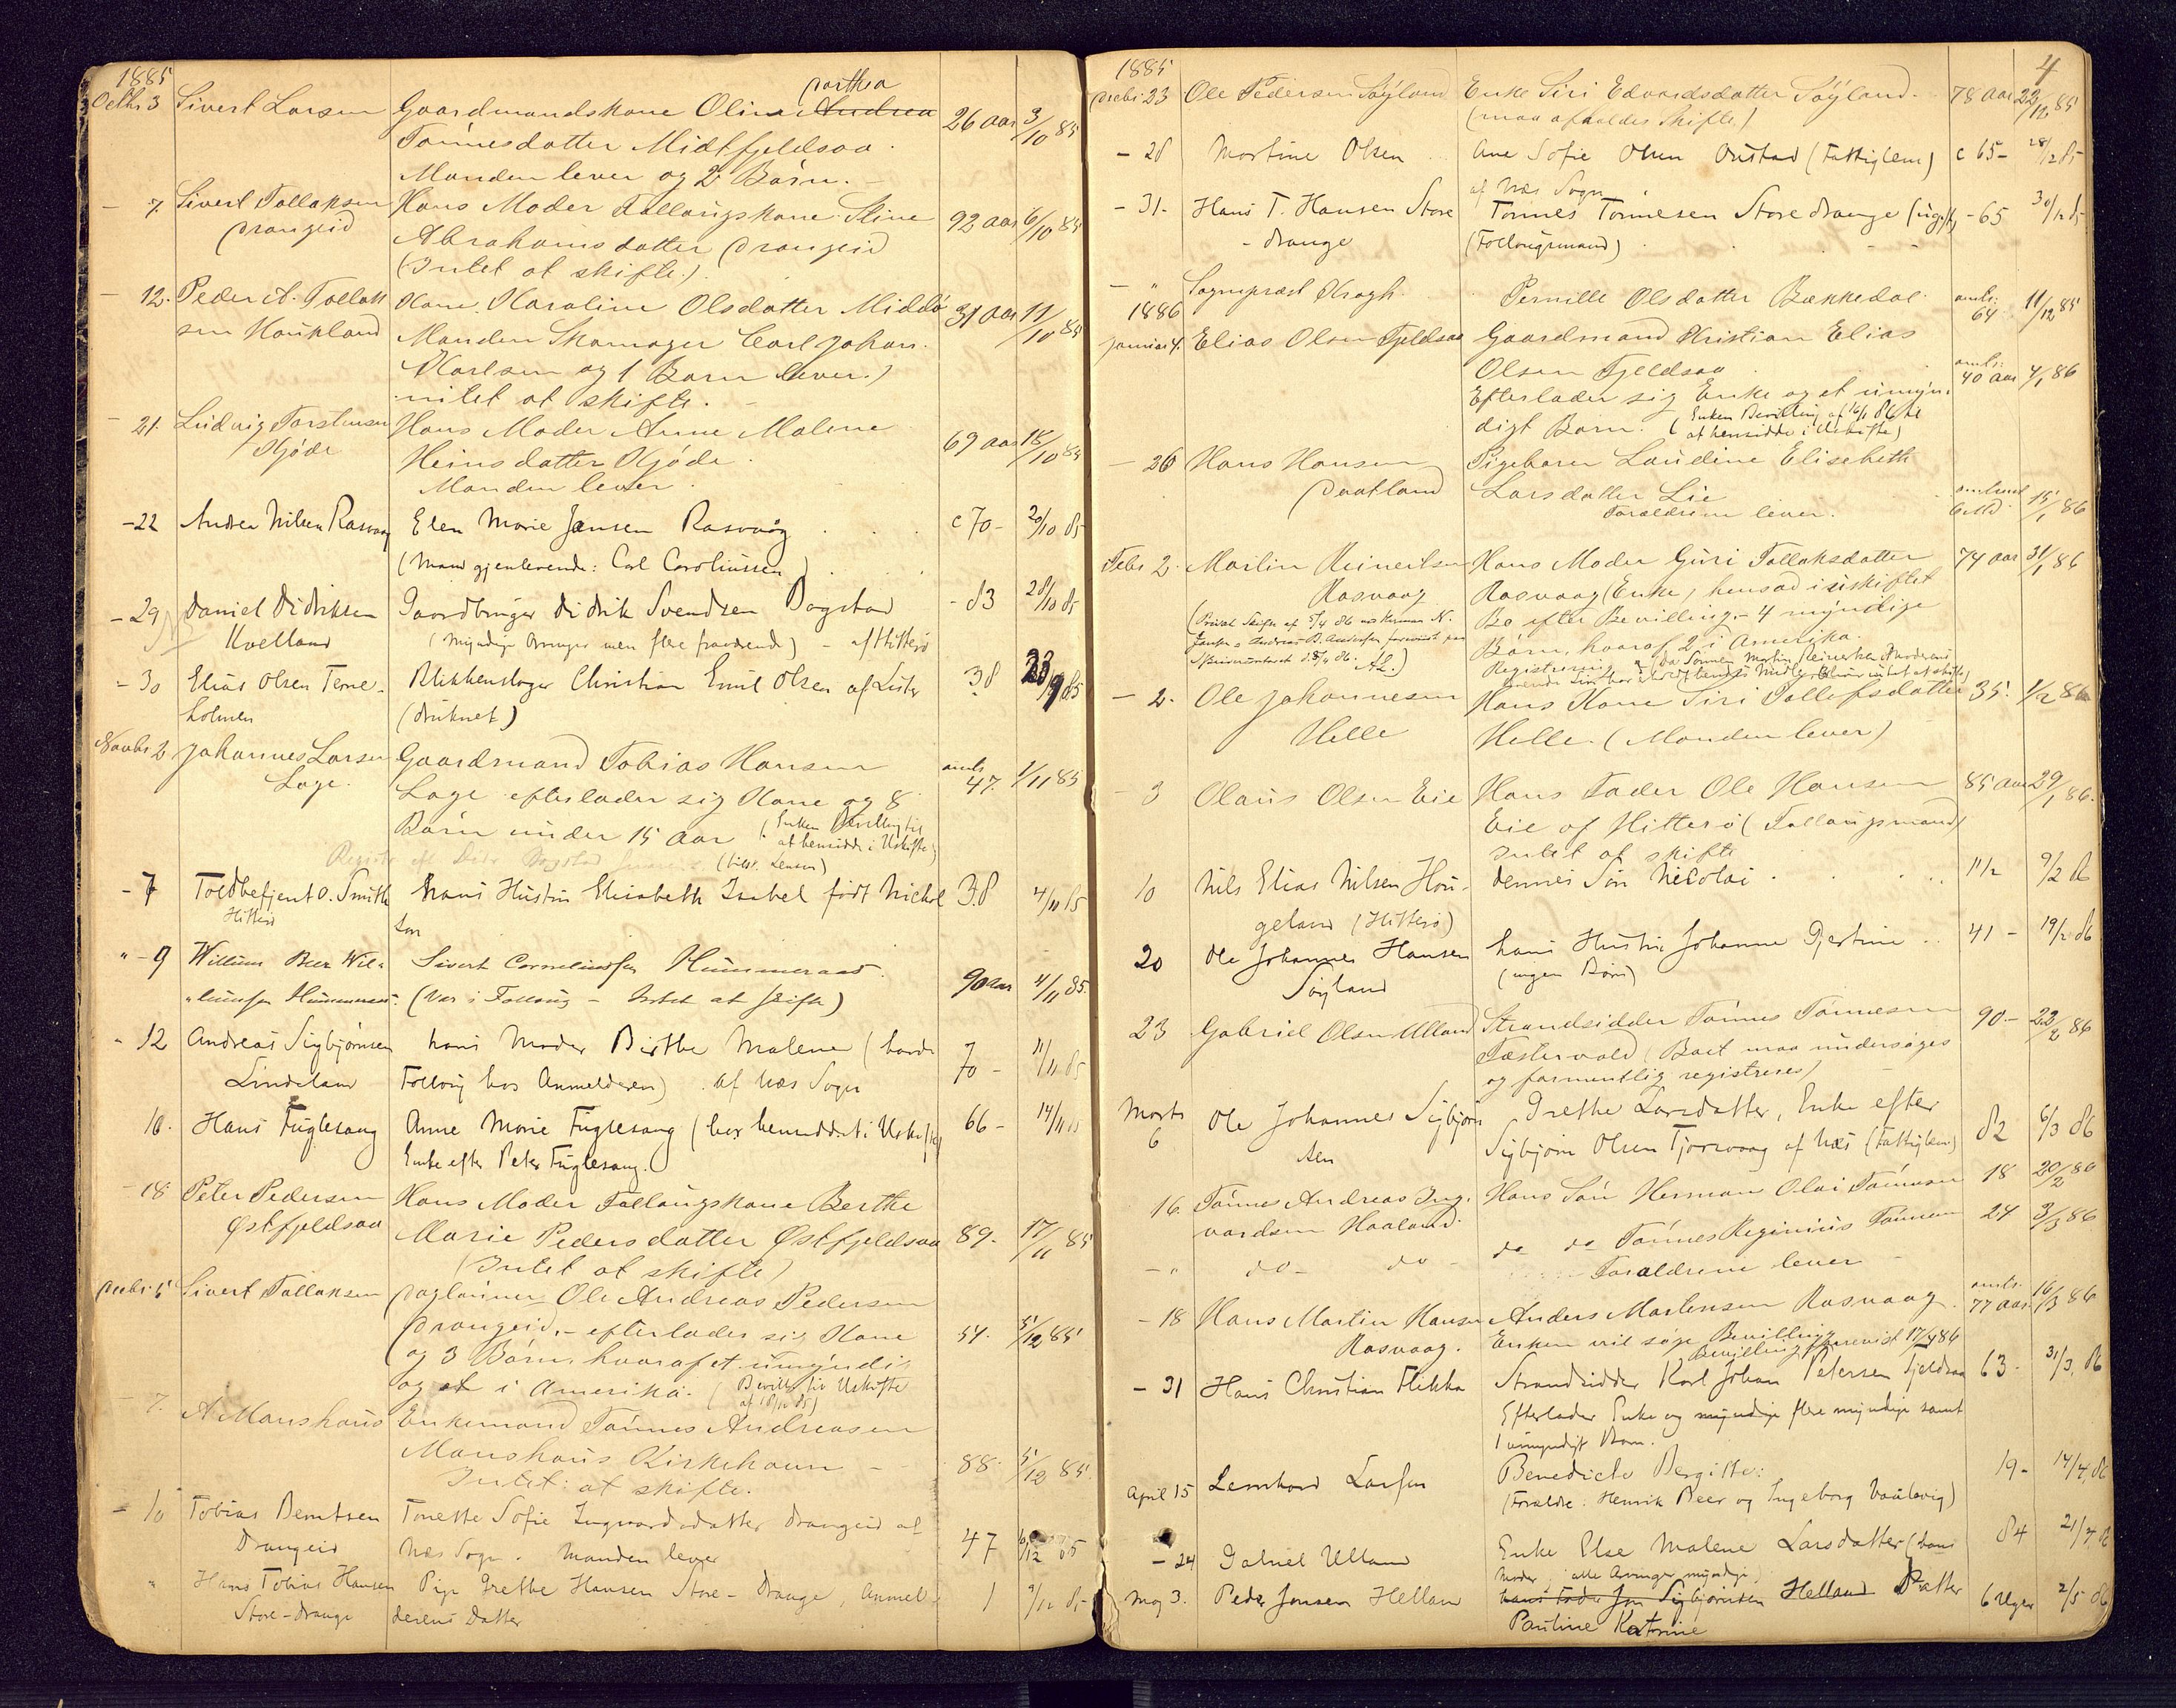 1885
Octbr 3 Sivert Larsen Gaardmandskone Olina Andrea 26 Aar 3/10 85
Dorthea
Tønnesdatter Midtfjeldsaa.
Manden lever og 2 Børn.
- 7. Sivert Tollaksen Hans Moder Føllaugskone Stine 92 Aar 6/10 85
Drangeid Abrahamsdatter Drangeid
(Intet at skifte.)
- 12. Peder A. Tollak Kone Karoline Olsdatter Middø 31 Aar 11/10 85
sen Haukland Manden Skomager Carl Johan
Karlsen og 1 Barn lever.)
intet at skifte.
- 21. Ludvig Torstensen Hans Moder Anne Malene 69 Aar 18/10 85
Kjøde Heinsdatter Kjøde.
Manden lever.
- 22 Andrea Nilsen Rasvaag Elen Marie Jansen Rasvaag c 70 - 20/10 85
(Mand gjenlevende: Carl Caroliussen)
- 29 Daniel Didriksen Gaardbruger Didrik Svendsen Dogstad - 83 28/10 85
Kvelland (Myndige Arvinger men flere fraværende) - af Hitterø
- 30 Elias Olsen Terne- Blikkenslager Christian Emil Olsen af Lister 38 85
holmen (druknet)
Novbr 2 Johannes Larsen Gaardmand Tobias Hansen amts 47. 1/11 85
Lage. Lage efterlader sig Kone og 8
Børn under 15 Aar (Enken Bevilling til
at hensidde i Uskifte)
(tilst. Lensm)
- 7 Toldbetjent O. Smith hans Hustru Elisabeth Isabel født Nichol 38 4/11 85
Hitterø son
" - 9 Willum Beer Wil- Sivert Corneliussen Hummeraas. 90 aar 4/11 85.
lumsen Hummeraas. (Var i Follaug - Intet at skifte)
- 12 Andreas Sigbjørnsen hans Moder Birthe Malene (havde 70 - 11/11 85
Lindeland Follaug hos Anmelderen) af Næs Sogn
16. Hans Fuglesang Anne Marie Fuglesang (har hensiddet i Uskifte) 66 - 14/11 85
Enke efter Peter Fuglesang.
- 18 Peter Pedersen Hans Moder Follaugskone Berthe
Østfjeldsaa Marie Pedersdatter Østfjeldsaa 89. 17/11 85
(Intet at skifte)
Decbr. 5 Sivert Tollaksen Daglønner Ole Andreas Pedersen
Drangeid, - efterlader sig Kone 54. 5/12 85
og 3 Børn, hvoraf et umyndig
og et i Amerika. (Bevill. til Uskifte
af 18/12 85)
- 7. A Manshaus Enkemand Tønnes Andreasen
Manshaus Kirkehavn - 88. 5/12 85.
Intet at skifte.
- 10 Tobias Berntsen Tonette Sofie Ingvardsdatter Drangeid af 47 6/12 85
Drangeid Næs Sogn. Manden lever
" Hans Tobias Hansen Pige Grethe Hansen Store-Drange, Anmel- 1 9/12 85
Store-Drange derens Datter
4
1885
Decbr 23 Ole Pedersen Søyland Enke Siri Edvardsdatter Søyland. 78 Aar 22/12 85
(maa afholdes Skifte.)
- 28 Martine Olsen Ane Sofie Olsen Ønstad (Fattiglem) c 65 - 28/12 85
af Næs Sogn
- 31 - Hans T. Hansen Store Tønnes Tønnesen Store Drange (ugift) - 65 30/12 85
- Drange (Follaugsmand)
- " Sognepræst Kragh. Pernille Olsdatter Bækkedal amts: 64 11/12 85
1886
Januar 4. Elias Olsen Fjeldsaa Gaardmand Kristian Elias
Olsen Fjeldsaa amts: 40 Aar 4/1 86
Efterlader sig Enke og et umyn-
digt Barn. (Enken Bevilling af 16/1 86 til
at hensidde i Uskifte)
- 26 Hans Hansen Pigebarn Laudine Elisebeth
Daatland Larsdatter Lie 6 Md. 15/1 86
Forældrene lever.
Febr 2. Martin Reinertsen Hans Moder Guri Tollaksdatter 74 Aar 31/1 86
Rasvaag Rasvaag (Enke) hensad i uskiftet
Bo efter Bevilling. - 4 myndige
Børn, hvoraf 2 i Amerika.
- 2. Ole Johannesen Hans Kone Siri Tollefsdatter 35. 1/2 86
Helle Helle. (Manden lever)
- 3 Olaus Olsen Eie Hans Fader Ole Hansen 85 Aar 29/1 86.
Eie af Hitterø (Follaugsmand)
Intet at skifte
10 Nils Elias Nilsen Hou- dennes Søn Nicolai 1 1/2 9/2 86
geland (Hitterø)
20 Ole Johannes Hansen hans Hustru Johanne Gjertine 41 - 19/2 86
Søyland (ingen Børn)
23 Gabriel Olsen Ulland Strandsidder Tønnes Tønnesen 90 - 22/2 86
Fæstervold (Boet maa undersøges
og formentlig registreres)
Marts 6 Ole Johannes Sigbjørn Grethe Larsdatter, Enke efter 82 6/3 86
sen Sigbjørn Olsen Tjorsvaag af Næs (Fattiglem)
16. Tønnes Andreas Ing- Hans Søn Herman Olai Tønnesen 18 20/2 86
vardsen Haaland.
- " do - do - do do Tønnes Reginius Tønnesen 24 3/3 86
Forældrene lever
- 18 Hans Martin Hansen Anders Mortensen Rasvaag amts. 77 Aar 16/3 86
Rasvaag. Enken vil søge Bevilling
Bevilling forevist 17/4 86
- 31 Hans Christian Flikka Strandsidder Karl Johan Petersen Fjeldsaa 63 - 31/3 86
Efterlader Enke og myndige flere myndige samt
1 umyndigt Barn.
April 15 Lennhard Larsen Benedicte Bergitte: 19 - 14/4 86
(Forældre: Henrik Beer og Ingeborg Vaulevig)
- 24 Gabriel Ulland Enke Else Malene Larsdatter (hans 84 21/4 86
Moder, alle Arvinger myndige)
Maj 3. Peder Jonsen Helland hans Fader Jon Sigbjørnsen Helland Datter 6 Uger 2/5 86
Pauline Katrine